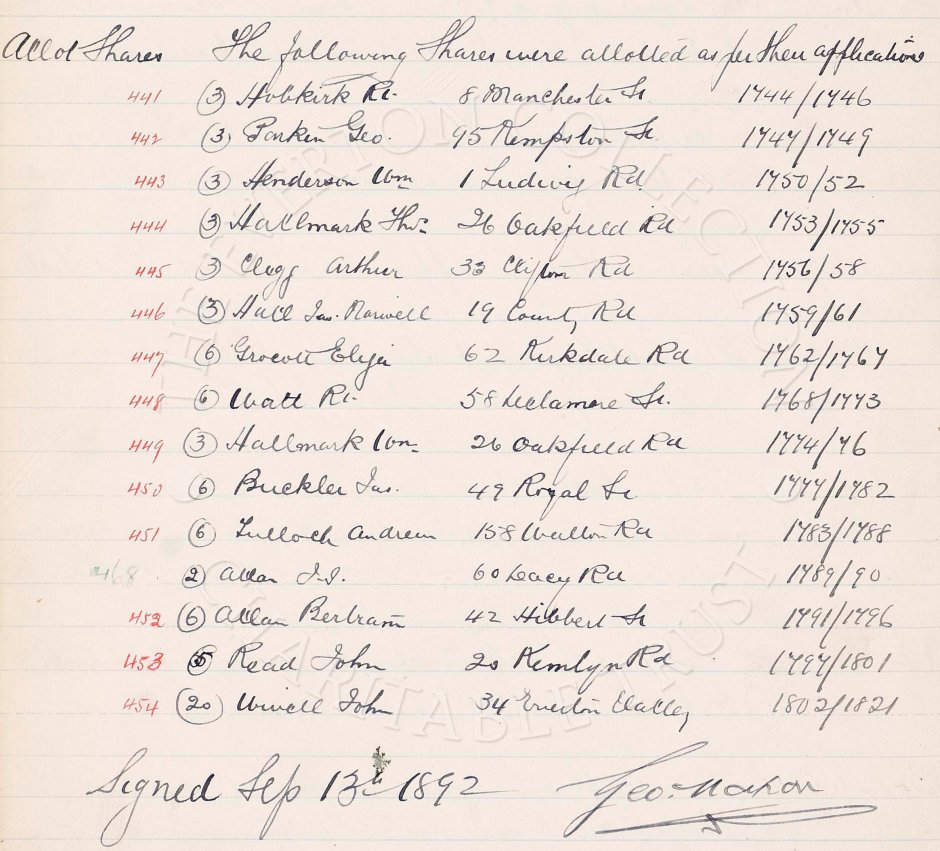 Allot Shares The following Shares were allotted as per their applications
441 (3) Hobkirk Rt. 8 Manchester St. 1744/1746
442 (3) Parkin Geo. 95 Kempston St 1747/1749
443 (3) Henderson Wm 1 Ludwig Rd 1750/52
444 (3) Hallmark Thos. 26 Oakfield Rd 1753/1755
445 (3) Clegg Arthur 33 Clifton Rd 1756/58
446 (3) Hall Jas. 19 County Rd 1759/61
447 (6) Grocott Elija 62 Kirkdale Rd 1762/1767
448 (6) Watt Rt. 58 Delamore St. 1768/1773
449 (3) Hallmark Wm. 26 Oakfield Rd 1774/76
450 (6) Buckler Jas. 49 Royal St 1777/1782
451 (6) Tulloch Andrew 158 Walton Rd 1783/1788
468 (2) Allan 60 Lacey Rd 1789/90
452 (6) Allan Bertram 42 Hibbert St 1791/1796
453 (5) Read John 20 Kemlyn Rd 1797/1801
454 (20) Wivell John 34 Everton Valley 1802/1821
Signed Sep 13th 1892 Geo. Mahon
THE EVERTON COLLECTION
CHARITABLE TRUST